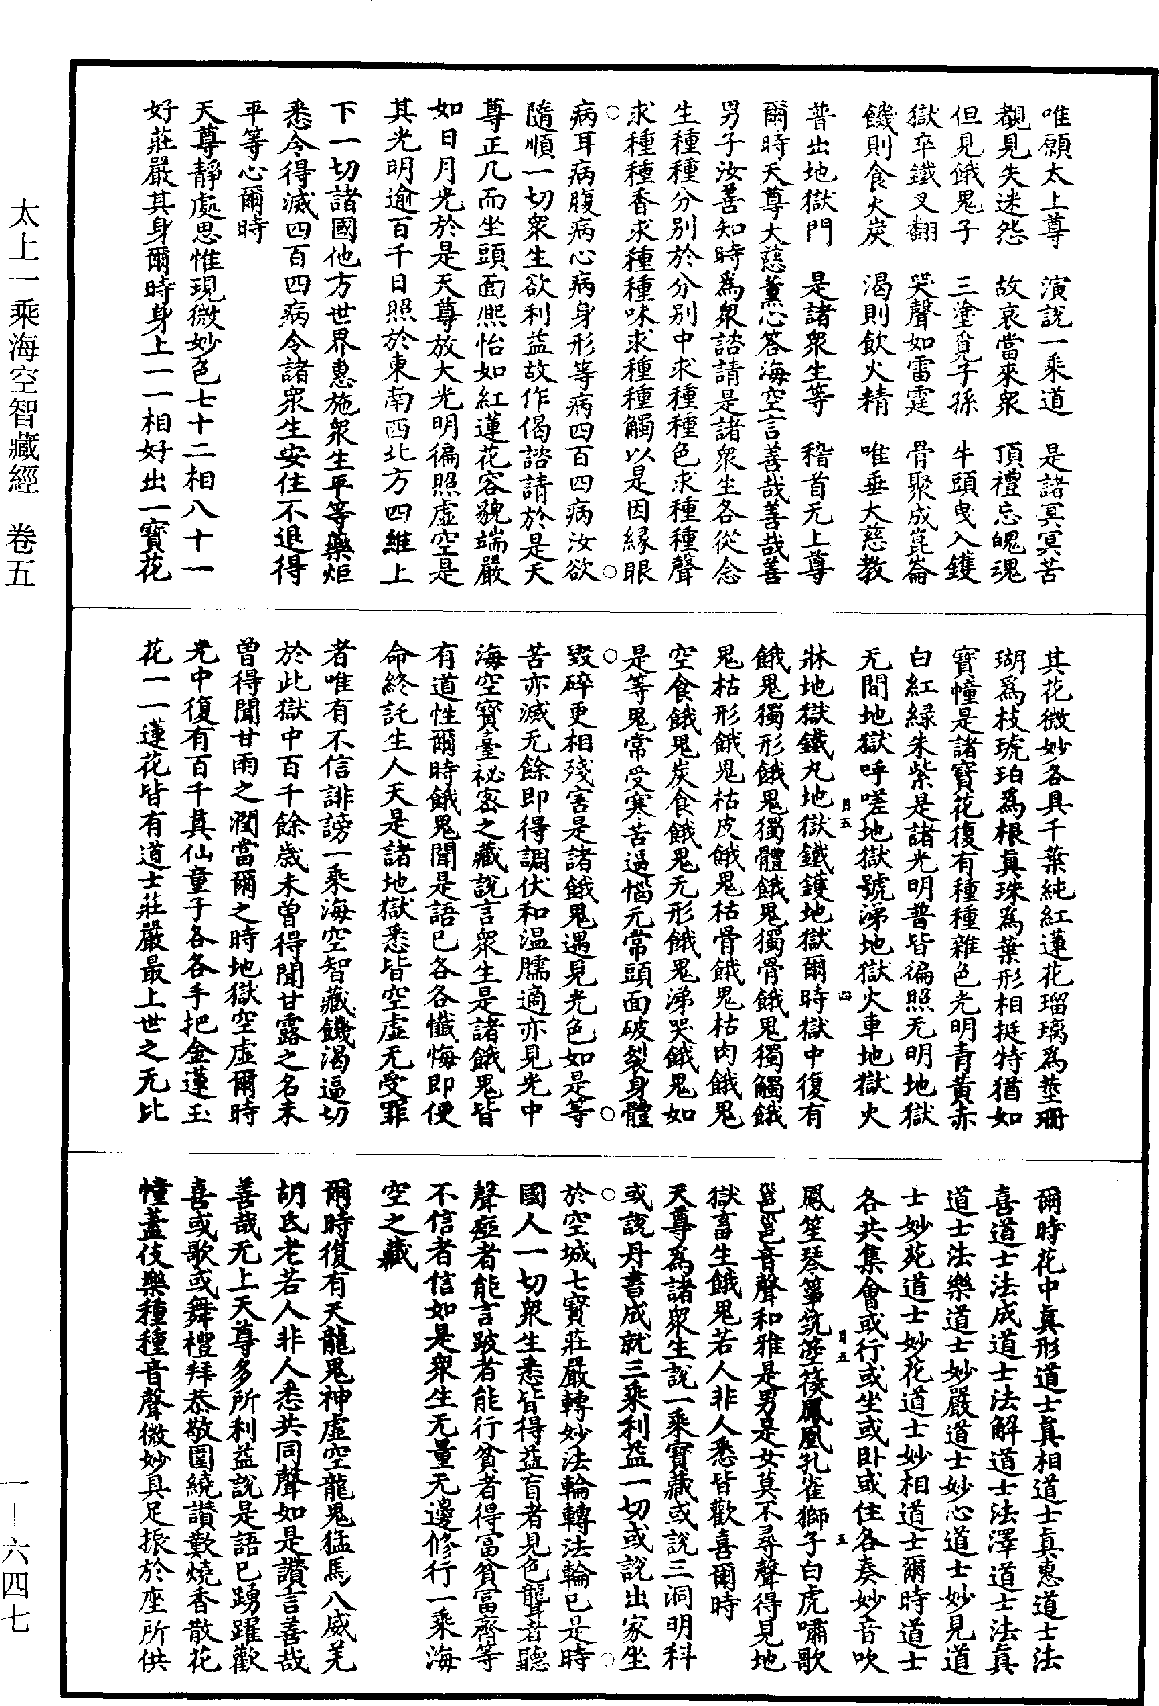 唯願太上尊　演說一乘道　是諸冥冥苦
覩見失迷怨　故哀當來衆　頂禮忘魄魂
但見餓鬼子　三塗覓子孫　牛頭曳入鑊
獄卒鐵叉翻　哭聲如雷霆　骨聚成崑崙
饑則食火炭　渴則飲火精　唯垂大慈教
普出地獄門　是諸衆生等　稽首无上尊
爾時天尊大慈薰心答海空言善哉善哉善
男子汝善知時爲衆諮請是諸衆生各從念
生種種分別於分別中求種種色求種種聲
求種種香求種種味求種種觸以是因緣眼
病耳病腹病心病身形等病四百四病汝欲
隨順一切衆生欲利益故作偈諮請於是天
尊正几而坐頭面熈怡如紅蓮花容貌端嚴
如日月光於是天尊放大光明徧照虛空是
其光明逾百千日照於東南西北方四維上
下一切諸國他方世界惠施衆生平等藥炬
悉令得滅四百四病令諸衆生安住不退得
平等心爾時
天尊靜處思惟現微妙色七十二相八十一
好莊嚴其身爾時身上一一相好出一寶花
其花微妙各具千葉純紅蓮花瑠璃爲莖珊
瑚爲枝琥珀爲根真珠爲葉形相挺特猶如
寶幢是諸寶花復有種種雜色光明青黃赤
白紅緑朱紫是諸光明普皆徧照无明地獄
无間地獄呼嗟地獄號涕地獄火車地獄火
牀地獄鐵丸地獄鐵鑊地獄爾時獄中復有
餓鬼獨形餓鬼獨體餓鬼獨骨餓鬼獨觸餓
鬼枯形餓鬼枯皮餓鬼枯骨餓鬼枯肉餓鬼
空食餓鬼炭食餓鬼无形餓鬼涕哭餓鬼如
是等鬼常受寒苦逼惱无常頭面破裂身體
毀碎更相殘害是諸餓鬼遇見光色如是等
苦亦滅无餘即得調伏和温臑適亦見光中
海空寶臺祕密之藏說言衆生是諸餓鬼皆
有道性爾時餓鬼聞是語已各各懺悔即便
命終託生人天是諸地獄悉皆空虛无受罪
者唯有不信誹謗一乘海空智藏饑渴逼切
於此獄中百千餘歲未曾得聞甘露之名未
曾得聞甘雨之潤當爾之時地獄空虛爾時
光中復有百千真仙童子各各手把金蓮玉
花一一蓮花皆有道士莊嚴最上世之无比
爾時花中真形道士真相道士真惠道士法
喜道士法成道士法解道士法澤道士法真
道士法樂道士妙嚴道士妙心道士妙見道
士妙菀道士妙花道士妙相道士爾時道士
各共集會或行或坐或卧或住各奏妙音吹
鳳笙琴箏筑箜篌鳳凰孔雀獅子白虎嘯歌
邕邕音聲和雅是男是女莫不尋聲得見地
獄畜生餓鬼若人非人悉皆歡喜爾時
天尊爲諸衆生說一乘寶藏或說三洞明科
或說丹書成就三乘利益一切或說出家坐
於空城七寶莊嚴轉妙法輪轉法輪已是時
國人一切衆生悉皆得益盲者見色聾者聽
聲瘂者能言跛者能行貧者得富貧富齊等
不信者信如是衆生无量无邊修行一乘海
空之藏
爾時復有天龍鬼神虛空龍鬼猛馬八威羌
胡氏老若人非人悉共同聲如是讚言善哉
善哉无上天尊多所利益說是語已踴躍歡
喜或歌或舞禮拜恭敬圍繞讚歎燒香散花
幢蓋伎樂種種音聲微妙具足振於座所供
太上一乘海空智藏經　卷五
一—六四七